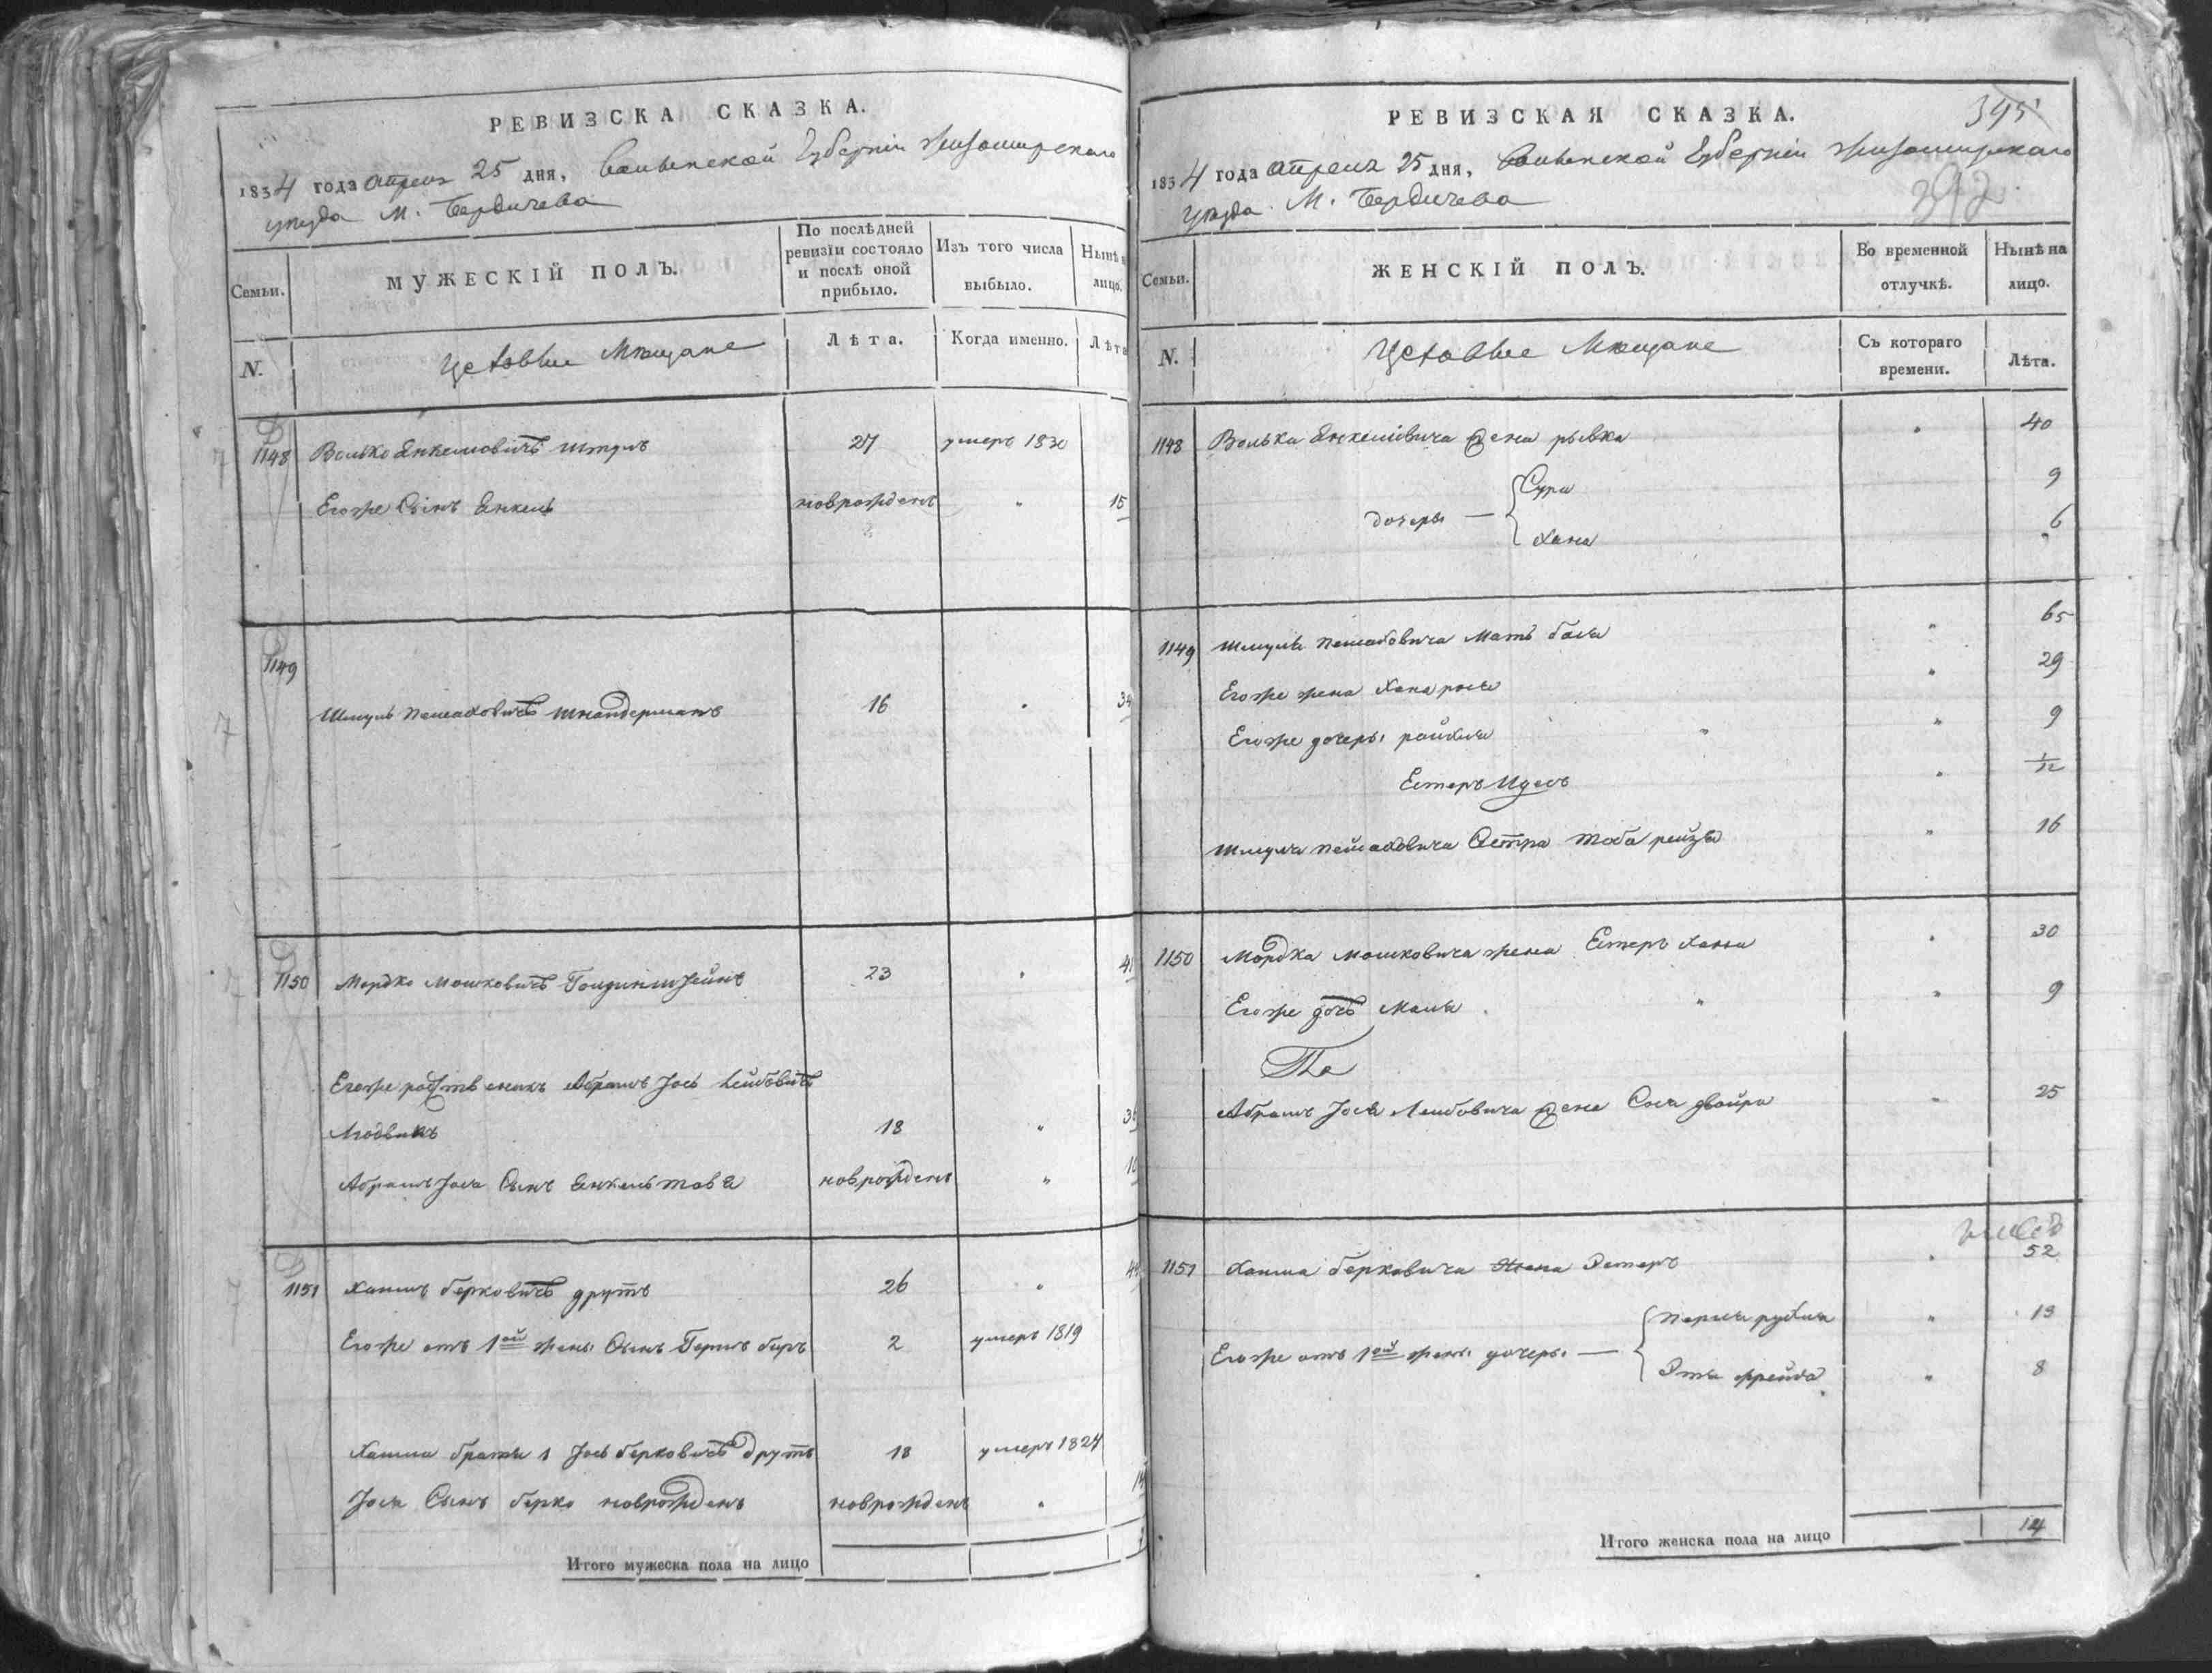 РЕВИЗСКАЯ СКАЗКА.
1834 года апреля 25 дня, Волынской Губернии Житомирского
уезда М. Бердичева
Семьи.
МУЖЕСКІЙ ПОЛЪ.
По послѣдней
ревизіи состояло
и послѣ оной
прибыло.
Изъ того числа
выбыло.
Нынѣ
лицо.
N.
Мещане
Лѣта.
Когда именно.
Лѣта
1148 Волько Янкелиовичъ Штрлъ 27 умеръ 1830
Егоже Сынъ Янкель новрожденъ " 15
1149
Шмуль Пейсаховичъ Шнайдерманъ 16
1150 Мордко Мошковичъ 23 41
Егоже Абрамъ Іось Лейбовичъ
18 "
Абрамъ Іося Сынъ Янкель новрожденъ "
1151 Хаимъ Берковичъ друтъ 26 "
Егоже отъ 1ой жены Сынъ Гершъ беръ 2 умеръ 1819
Хаима братья 1 Іось Берковичъ друтъ 18 умеръ 1824
Іося Сынъ Берко новрожденъ новрожденъ "
Итого мужеска пола на лицо
РЕВИЗСКАЯ СКАЗКА.
395
1834 года апреля 25 дня, Волынской Губернии Житомирского
уезда М. Бердичева
392
Семьи.
ЖЕНСКІЙ ПОЛЪ.
Во временной
отлучкѣ.
Нынѣ на
лицо.
N.
Мещане
Съ котораго
времени.
Лѣта.
1148 Волька Янкелиовича жена рывка " 40
дочеры
Сура 9
Хана 6
1149 Шмуля Пейсаховича Мать бася " 65
Егоже жена Хана " 29
Егоже дочеры райхля " 9
Естеръ Идесъ " 1/12
Шмуля Пейсаховича Сестра Тоба рейзя " 16
1150 Мордка Мошковича жена Естеръ Ханна " 30
Егоже дочь Маля " 9
Абрамъ Іося Лейбовича жена Сося двойра " 25
1151 Хаима Берковича жена Эстеръ " 52
Егоже отъ 1ой жены дочеры
Перля рухля " 13
Этя фрейда " 8
Итого женска пола на лицо 14